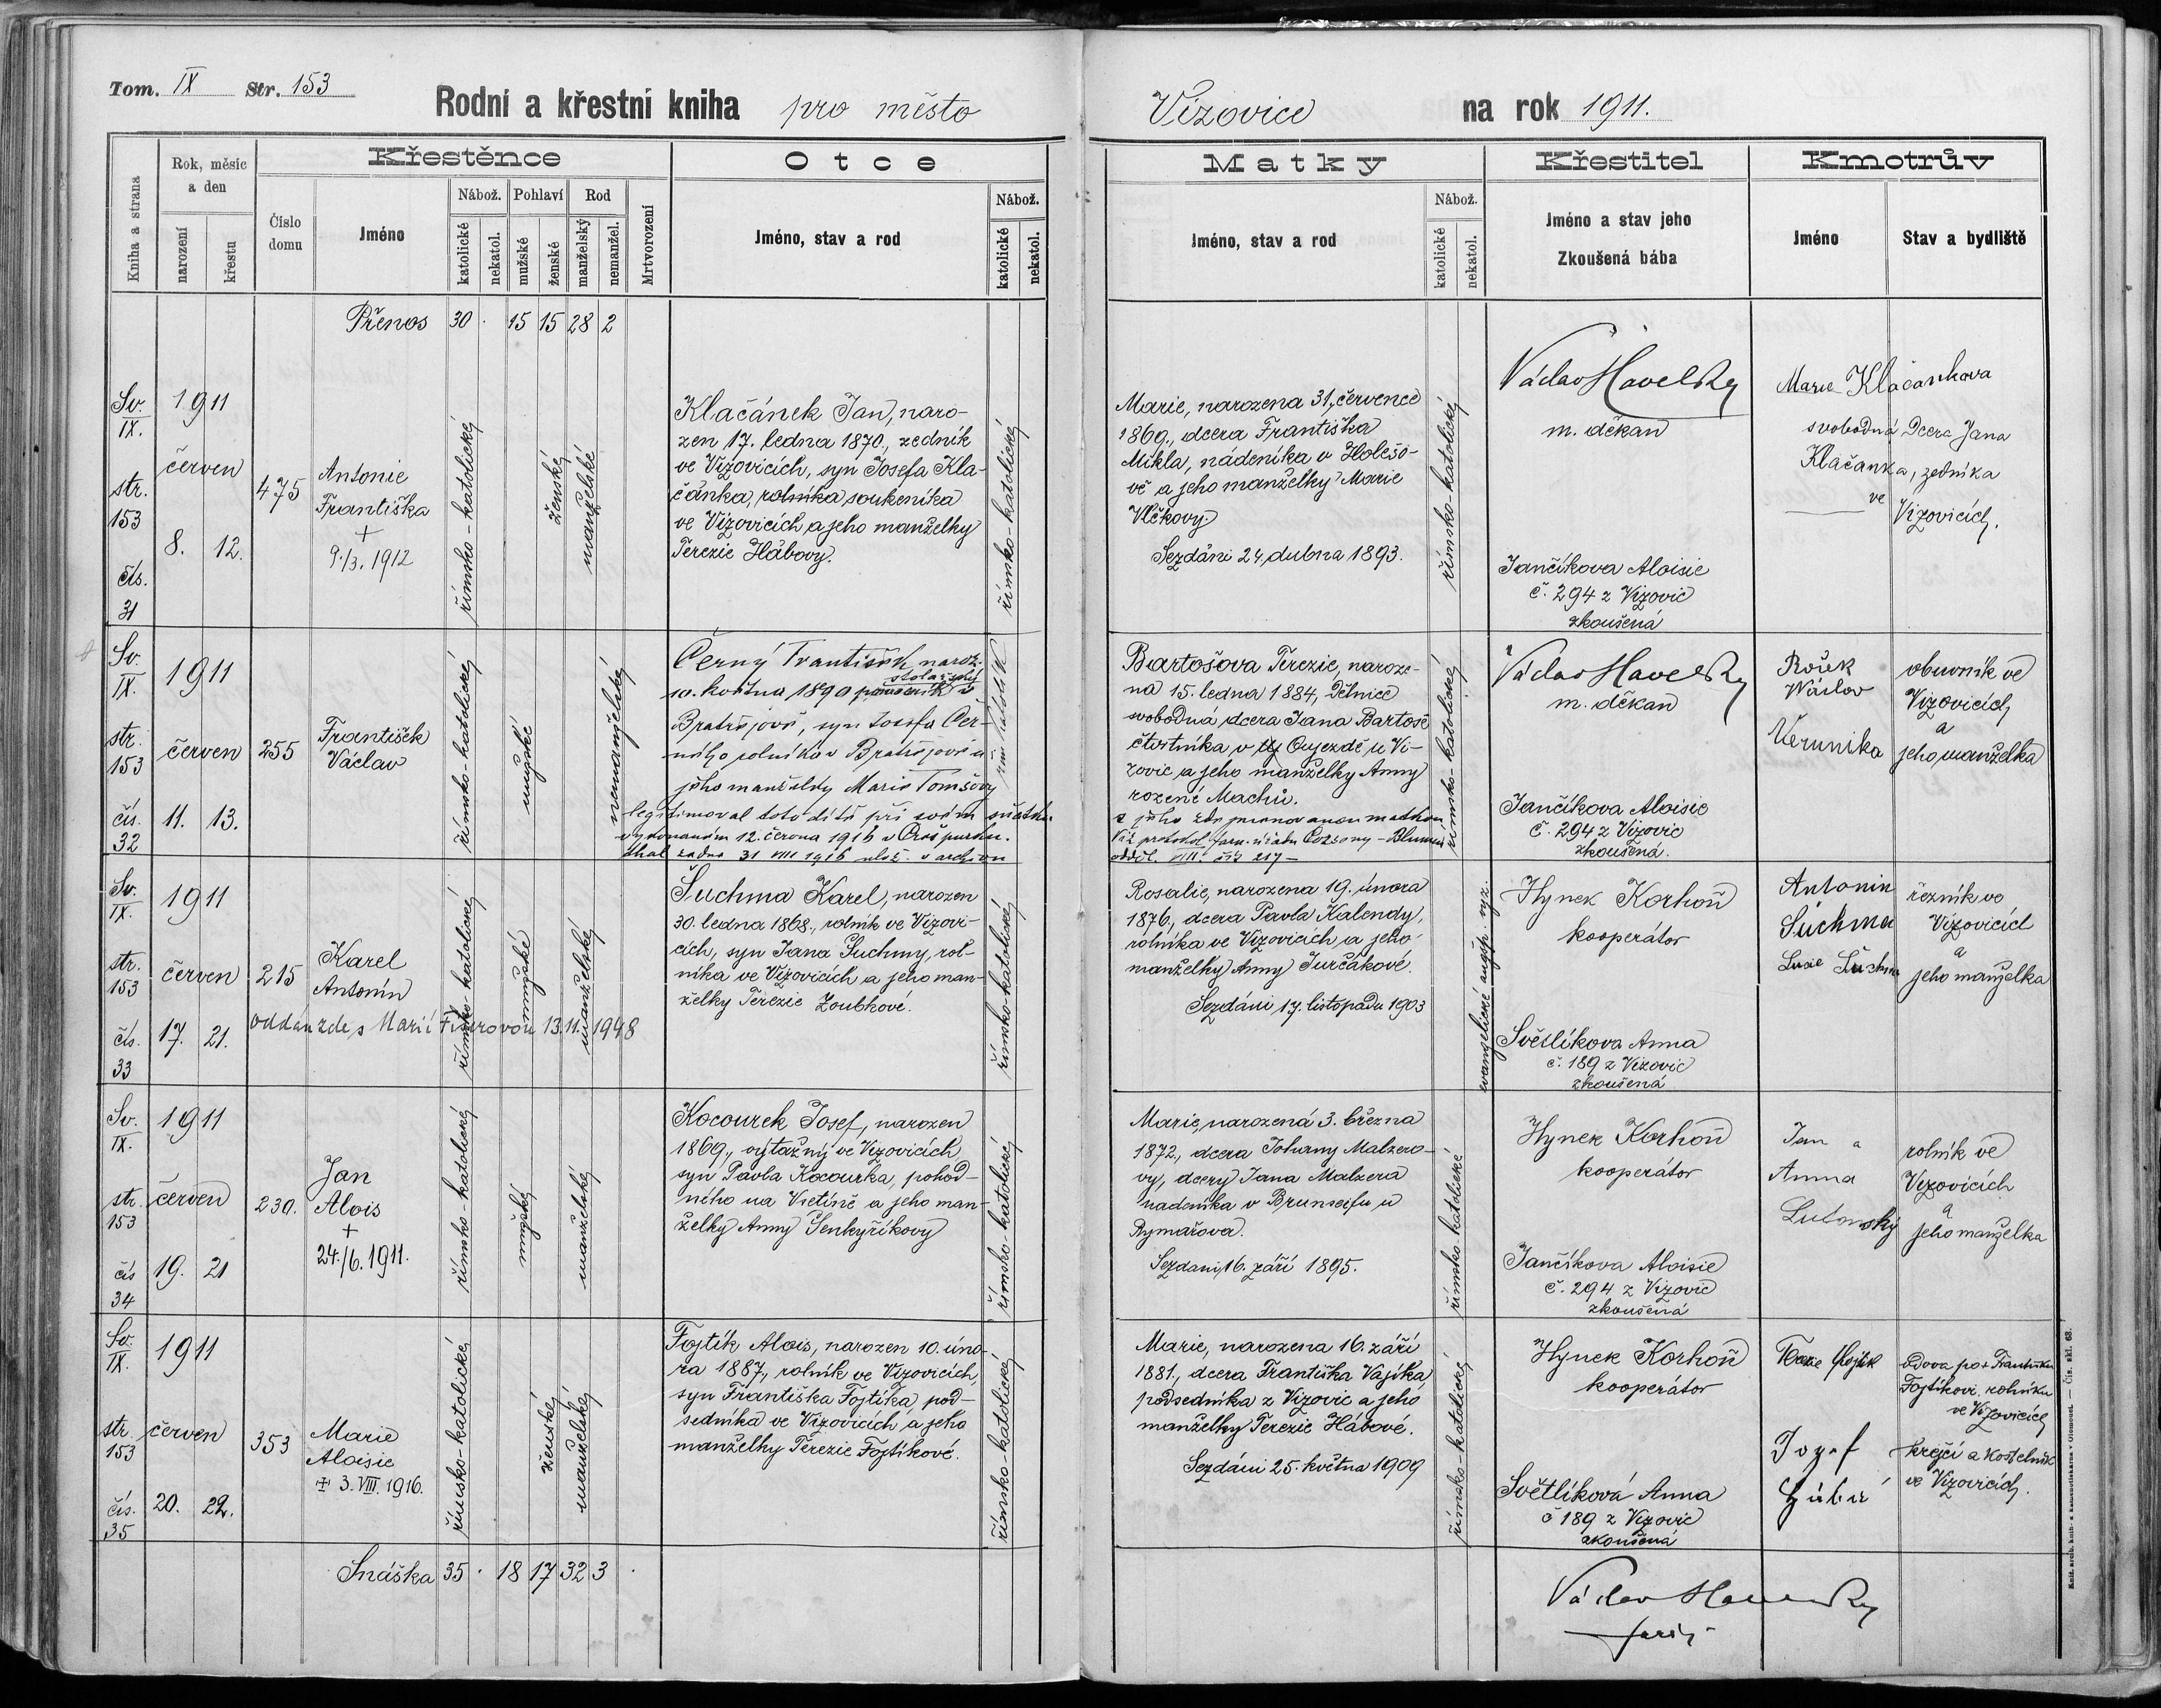 Tom. IX Str. 153
Rodní a křestní kniha pro město Vizovice na rok 1911.
Křestěnce
Otce
Matky
Křestitel
Kmotrův
Kniha a strana
Rok, měsíc
a den
narození
křestu
Číslo
domu
Jméno
Nábož.
katolické
nekatol.
Pohlaví
mužské
ženské
Rod
manželský
nemanžel.
Mrtvorození
Jméno, stav a rod
Nábož.
katolické
nekatol.
Jméno, stav a rod
Nábož.
katolické
nekatol.
Jméno a stav jeho
Zkoušená bába
Jméno
Stav a bydliště
Přenos 30 . 15 15 28 2
Sv.
IX.
str.
153
čís.
31
1911
červen
8. 12.
475
Antonie
Františka
+
9./3. 1912
římsko-katolické
ženské
manželské
Klačánek Jan, naro-
zen 17. ledna 1870., zedník
ve Vizovicích, syn Josefa Kla-
čánka, rolníka soukeníka
ve Vizovicích a jeho manželky
Terezie Hábovy.
římsko-katolický
Marie, narozena 31. července
1869., dcera Františka
Mikla, nádeníka v Holešo-
vě a jeho manželky Marie
Vlčkovy.
Sezdáni 24. dubna 1893.
římsko-katolický
Václav Havelský
m. děkan
Jančíkova Aloisie
č. 294 z Vizovic
zkoušená
Marie Klačankova
svobodná Dcera Jana
Klačanka, zedníka
ve
Vizovicích.
Sv.
IX.
str.
153
čís.
32
1911
červen
11. 13.
255
František
Václav
římsko-katolický
mužské
nemanželský
Černý František naroz.
stolařský
10. května 1890 pomocník v
Bratřejově, syn Josefa Čer-
ného rolníka v Bratřejově a
jeho manželky Marie Tomšovy
legitimoval toto dítě při svém sňatku
vykonaném 12. června 1916 v Prešpurku.
řím. katolík
Bartošova Terezie, naroze-
na 15. ledna 1884, Dělnice
svobodná dcera Jana Bartoše
čtvrtníka v Oujezdě u Vi-
zovic a jeho manželky Anny
rozené Machů.
s jeho zde jmenovanou matkou
římsko-katolické
Václav Havelský
m. děkan
Jančíkova Aloisie
č. 294 z Vizovic
zkoušená.
Václav
Verunika
obuvník ve
Vizovicích
a
jeho manželka
Sv.
IX.
str.
153
čís.
33
1911
červen
17. 21.
215
Karel
Antonín
oddán zde s Marií Fišerovou 13.11.1948
římsko-katolické
mužské
manželské
Šuchma Karel, narozen
30. ledna 1868., rolník ve Vizovi-
cích, syn Jana Šuchmy, rol-
níka ve Vizovicích a jeho man-
želky Terezie Zoubkové.
římsko-katolický
Rosalie, narozena 19. února
1876., dcera Pavla Kalendy,
rolníka ve Vizovicích a jeho
manželky Anny Jurčákové.
Sezdáni 17. listopadu 1903
evangelické augsp. vyz.
Hynek Korhoň
kooperátor
Světlíkova Anna
č. 189 z Vizovic
zkoušená
Antonin
Šuchma
řezník ve
Vizovicích
a
jeho manželka
Sv.
IX.
str.
153
čís
34
1911
červen
19. 21
230.
Jan
Alois
+
24./6. 1911.
římsko-katolické
mužský
manželský
Kocourek Josef, narozen
1869., výtažný ve Vizovicích,
syn Pavla Kocourka, pohod-
ného na Vsetíně a jeho man-
želky Anny Šenkyříkovy
římsko-katolický
Marie, narozená 3. března
1872., dcera Johany Malzero-
vy, dcery Jana Malzera
nadeníka v Brunseifu u
Rymařova.
Sezdani 16. září 1895.
římsko-katolické
Hynek Korhoň
kooperátor
Jančíkova Aloisie
č. 294 z Vizovic
zkoušená
Jan a
Anna
Lutonský
rolník ve
Vizovicích
a
jeho manželka
Sv.
IX.
str.
153
čís.
35
1911
červen
20. 22.
353
Marie
Aloisie
+ 3. VIII. 1916.
římsko-katolické
ženské
manželské
Fojtík Alois, narozen 10. úno-
ra 1887., rolník ve Vizovicích,
syn Františka Fojtíka, pod-
sedníka ve Vizovicích a jeho
manželky Terezie Fojtíkové.
římsko-katolický
Marie, narozena 16. září
1881., dcera Františka Vajíka
podsedníka z Vizovic a jeho
manželky Terezie Hábové.
Sezdáni 25. května 1909
římsko-katolický
Hynek Korhoň
kooperátor
Světlíková Anna
č 189 z Vizovic
zkoušená
Fojtík
vdova po + Františku
Fojtíkovi, rolníku
ve Vizovicích
Jozef
Hába
krejčí a kostelník
ve Vizovicích.
Snáška 35 . 18 17 32 3 .
Václav Havelský
farář